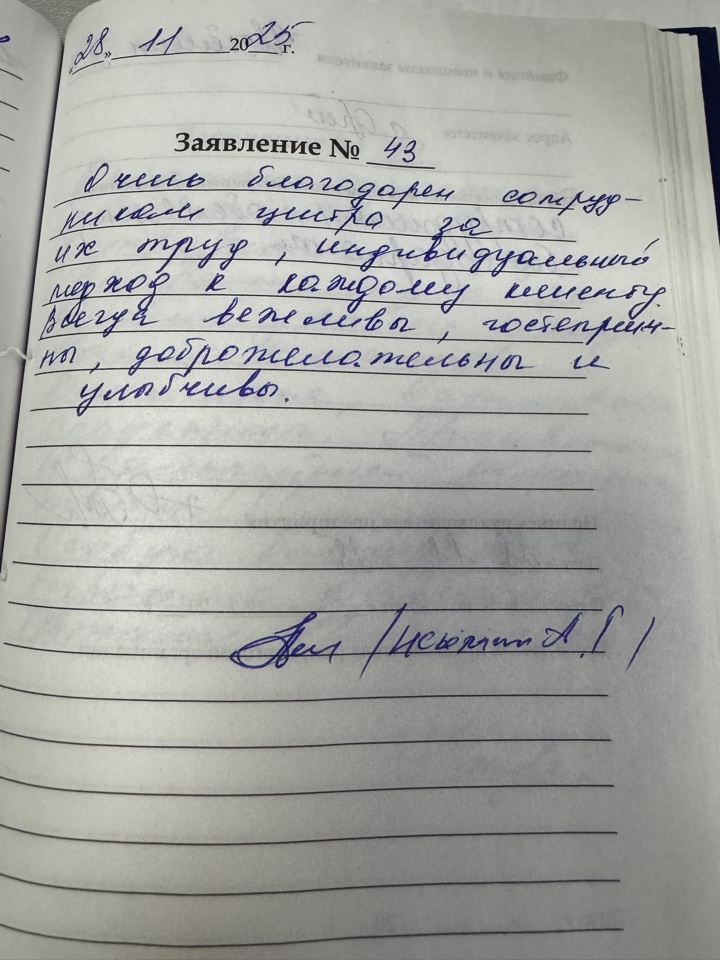 «28» 11 2025 г.
Заявление № 43
Очень благодарен сотруд-
никам центра за
их труд, индивидуальный
подход к каждому клиенту.
Всегда вежливы, гостеприим-
ны, доброжелательны и
улыбчивы.